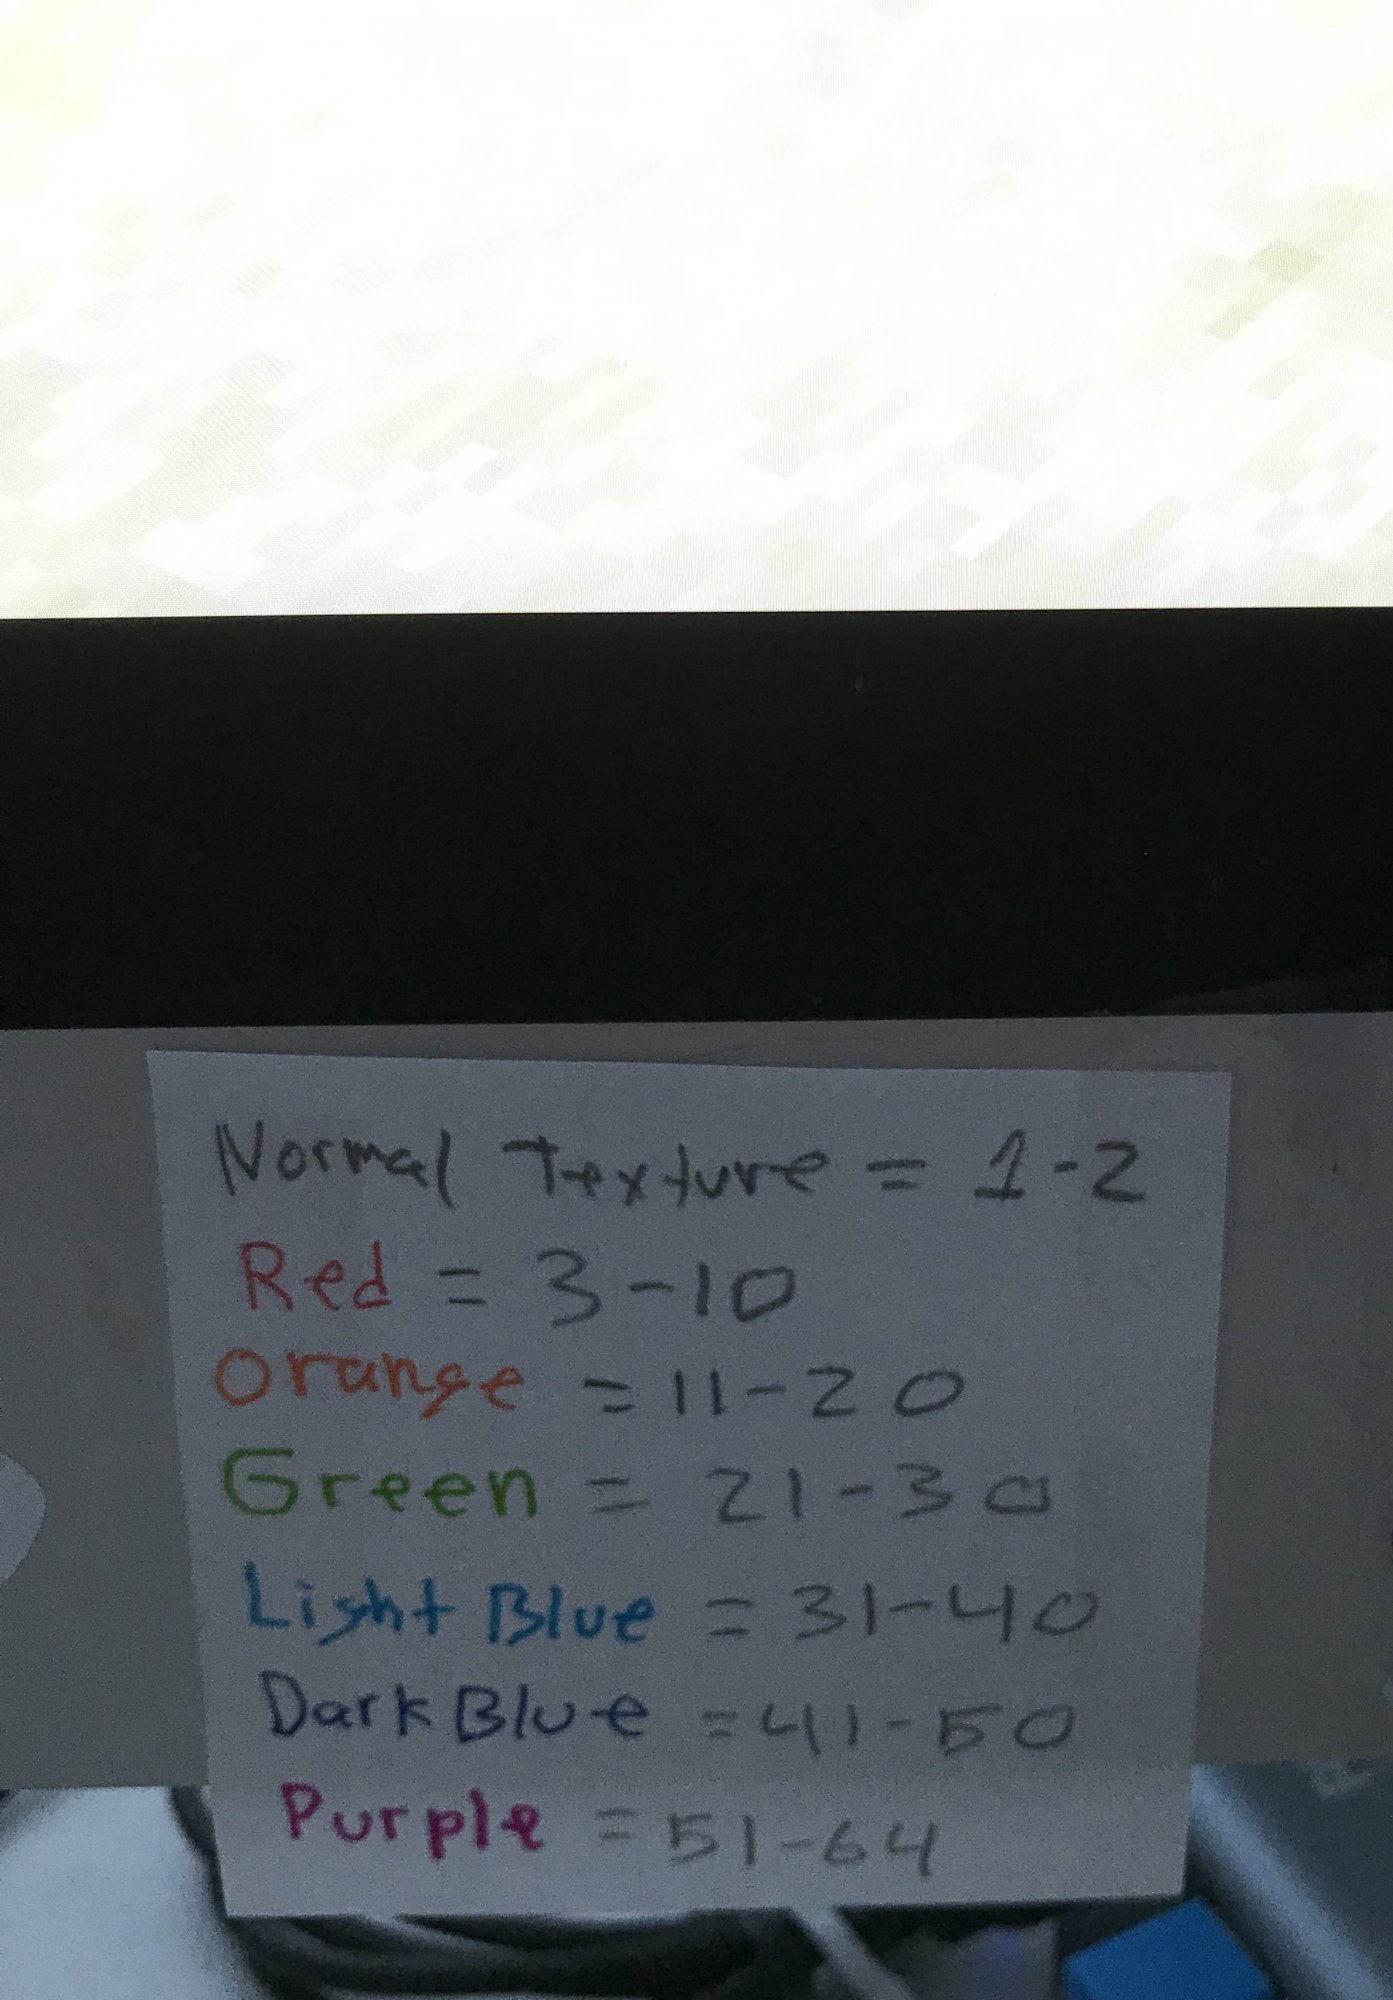 Normal Texture = 1-2
Red = 3-10
Orange = 11-20
Green = 21-30
Light Blue = 31-40
Dark Blue = 41-50
Purple = 51-64